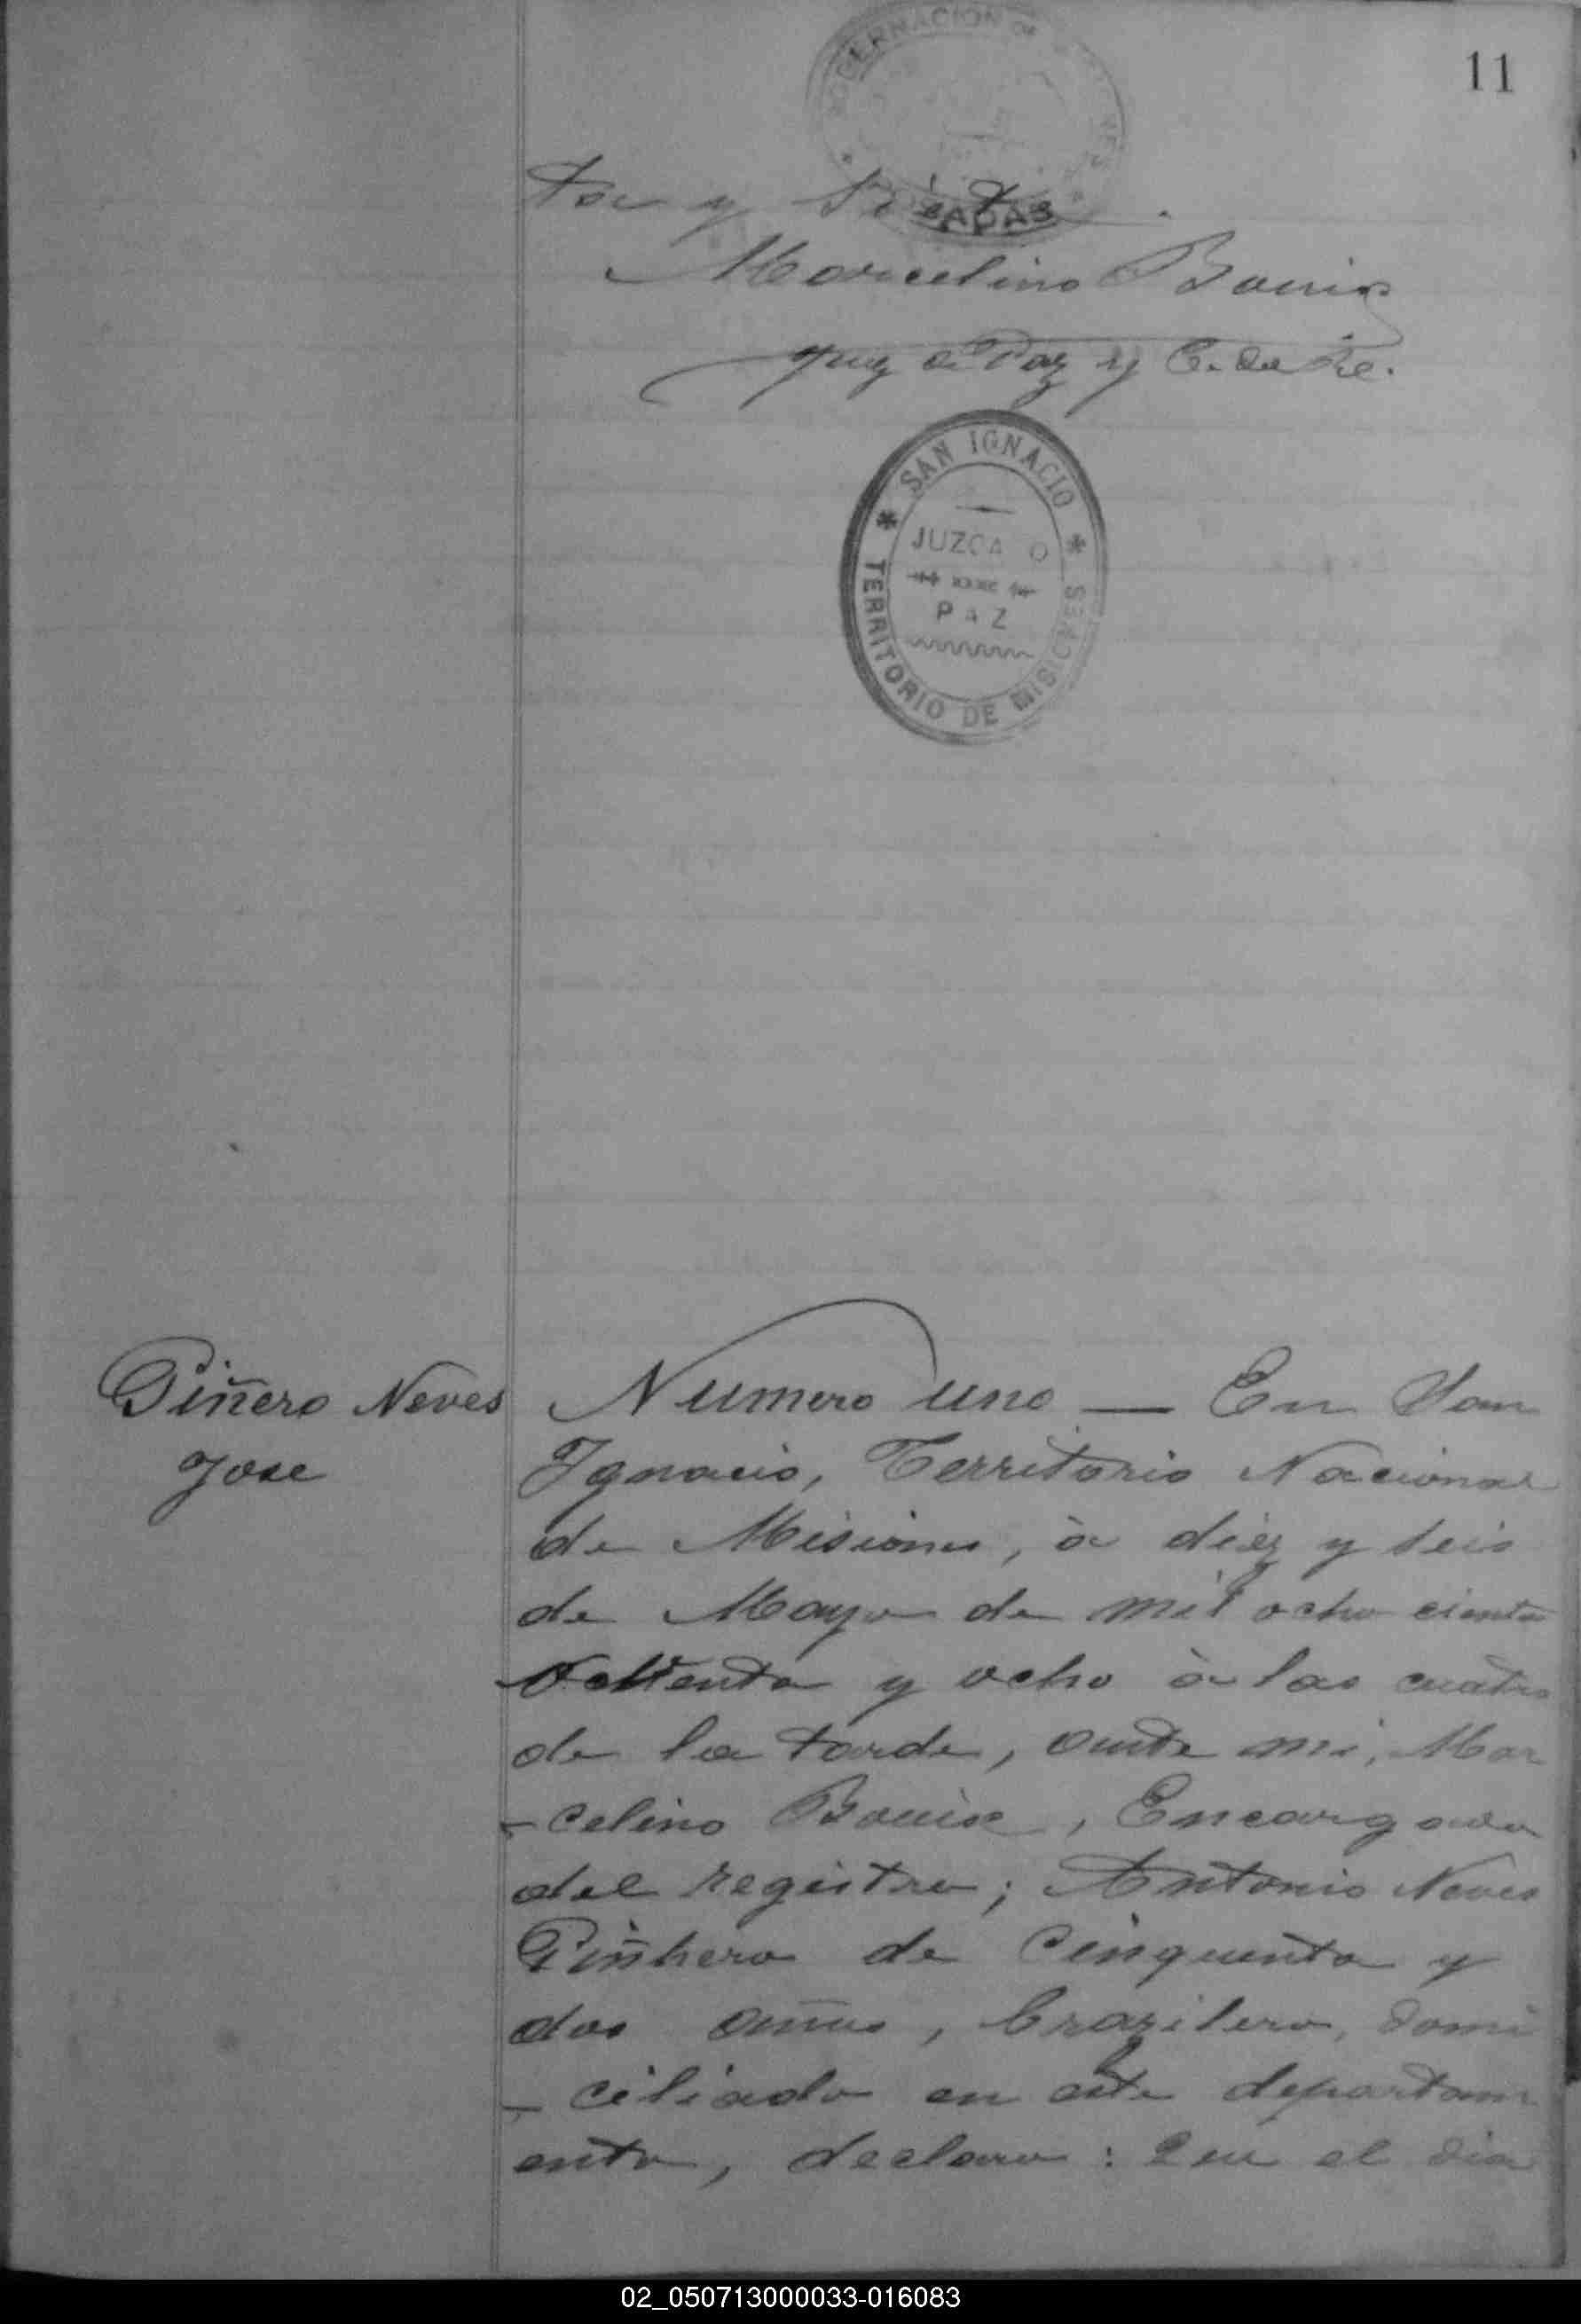 GOBERNACION DE MISIONES
11
POSADAS
Marcelino Bouix
Juez de Paz y E. del Re.
* SAN IGNACIO *
JUZGADO
PAZ
TERRITORIO DE MISIONES
Piñero Neves
Jose
Numero uno — En San
Ygnacio, Territorio Nacional
de Misiones, à diez y seis
de Mayo de mil ocho cientos
y ocho à las cuatro
de la tarde, ante mi, Mar
-celino Bouix, Encargado
del registro; Antonio Neves
Piñhero de Cinquenta y
dos años, brazilero, domi
-ciliado en este departam
ento, declaro: Que el dia
02_050713000033-016083